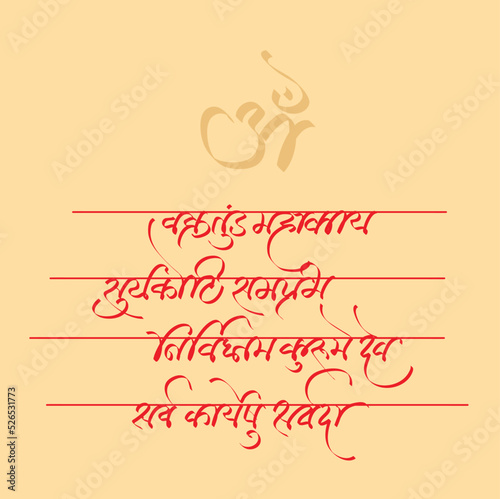 ॐ
वक्रतुंड महाकाय
सुर्यकोटि समप्रभ
निर्विघ्नम कुरुमे देव
सर्व कार्येषु सर्वदा
Adobe Stock | #526531773